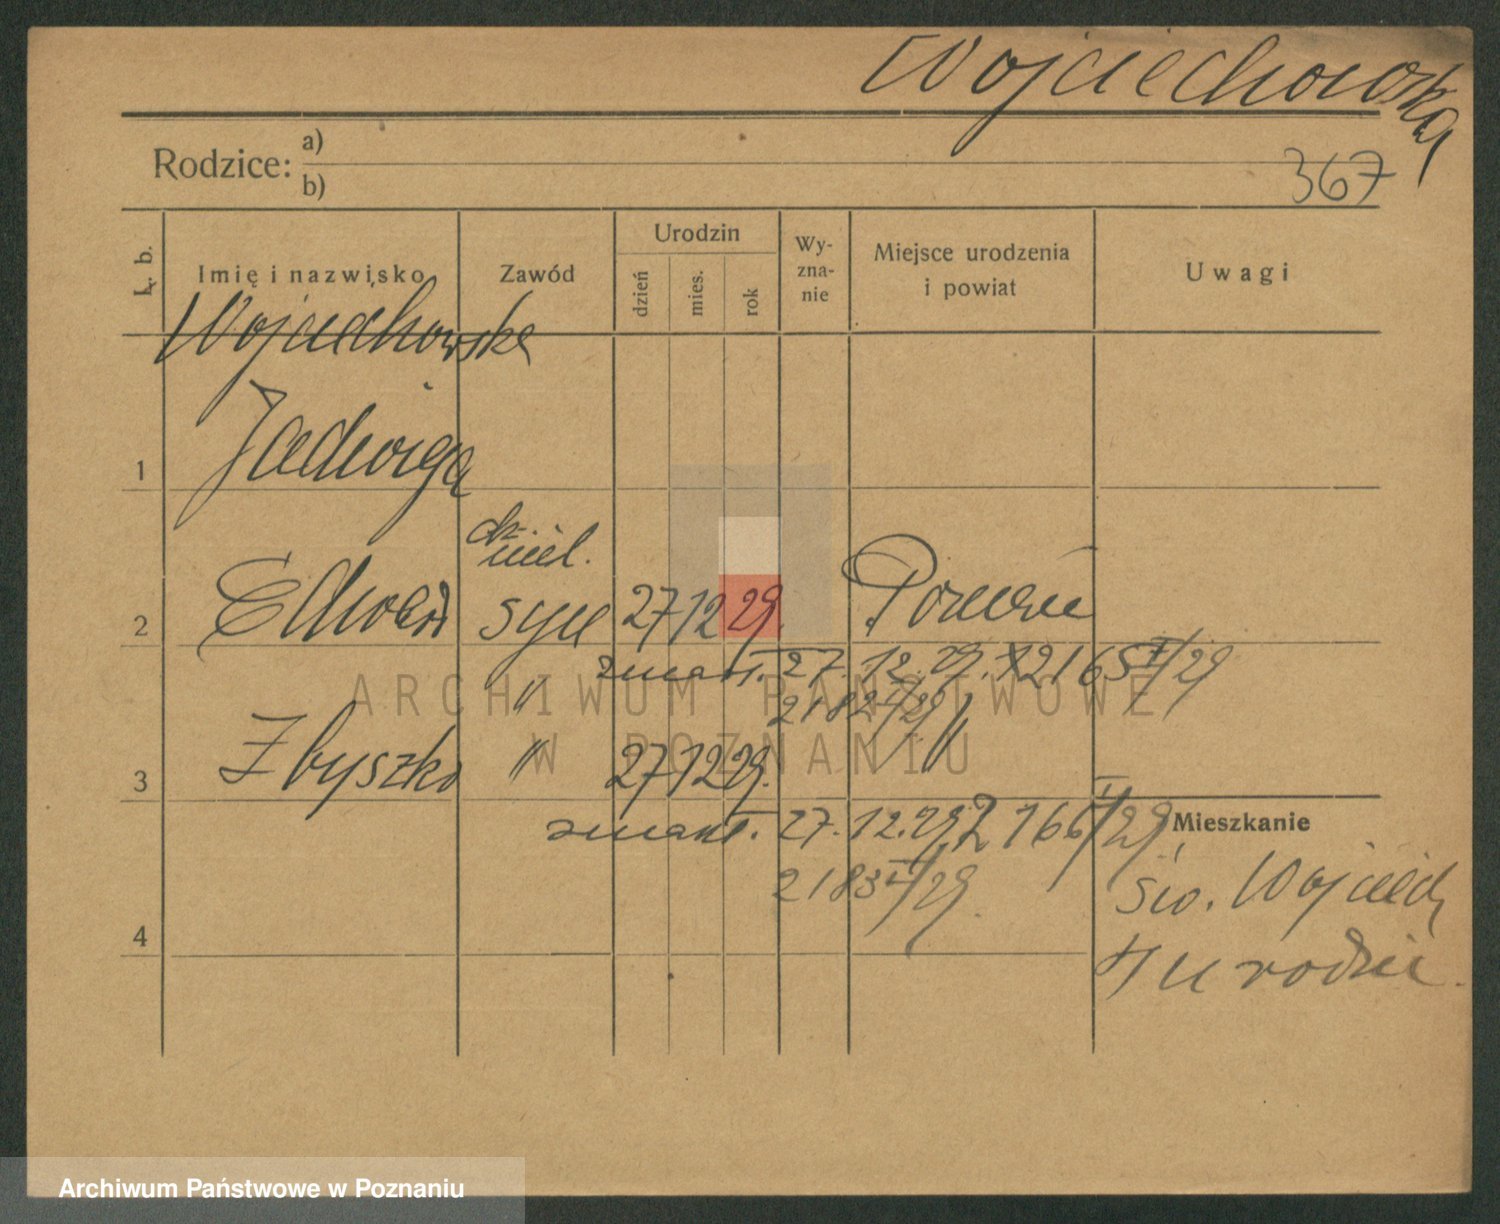 Wojciechowska
Rodzice: a)
b)
367
L. b.
Imię i nazwisko
Zawód
Urodzin
dzień
mies.
rok
Wy-
zna-
nie
Miejsce urodzenia
i powiat
Uwagi
Wojciechowska
1 Jadwiga
2 Edward syn 27 12 29. Poznań
zmarł. 27. 12. 29. 2165
2182
3 Zbyszko " " 27 12 29.
zmarł. 27. 12. 29 2166 /29
2183 /29.
Mieszkanie
św. Wojciech
4 u rodzic.
4
ARCHIWUM PAŃSTWOWE
W POZNANIU
Archiwum Państwowe w Poznaniu